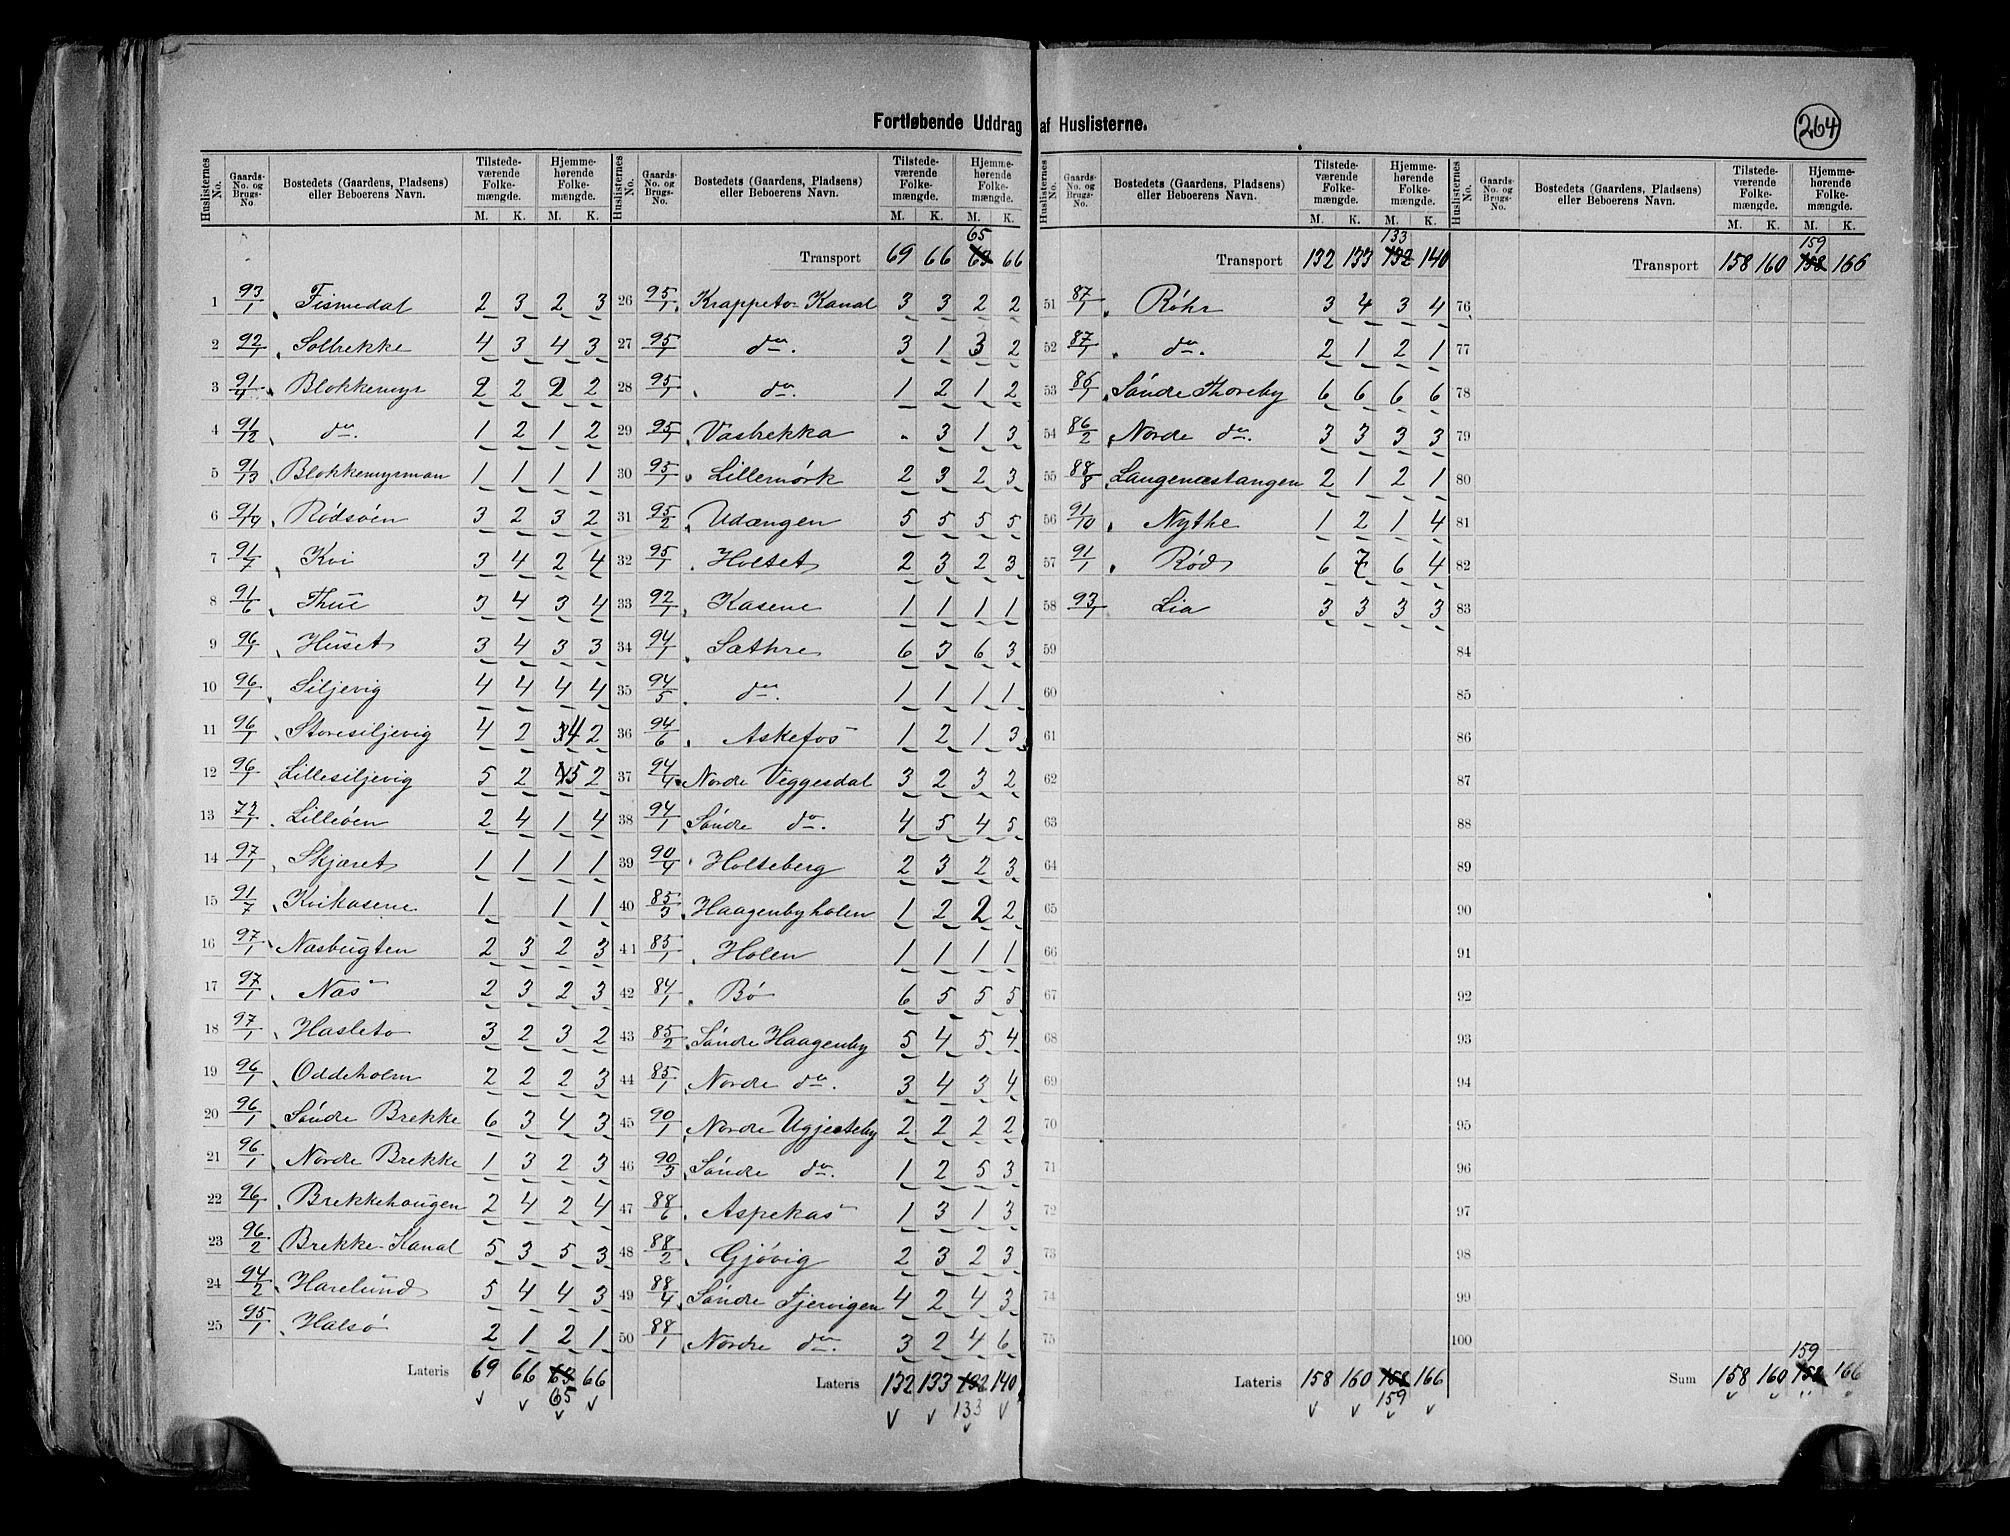 Fortløbende Uddrag af Huslisterne.
264
Huslisternes No. | Gaards-No. og Brugs-No. | Bostedets (Gaardens, Pladsens) eller Beboerens Navn. | Tilstede-værende Folke-mængde. M. K. | Hjemme-hørende Folke-mængde. M. K.
1 93/1 Fismedal 2 3 2 3
2 92/1 Solbrekke 4 3 4 3
3 91/4 Blokkemyr 2 2 2 2
4 91/12 do. 1 2 1 2
5 91/13 Blokkemyrman 1 1 1 1
6 91/14 Rødsøen 3 2 3 2
7 91/7 Kvi 3 4 2 4
8 91/6 Thue 3 4 3 4
9 96/1 Huset 3 4 3 3
10 96/1 Siljevig 4 4 4 4
11 96/1 Storesiljevig 4 2 4 2
12 96/1 Lillesiljevig 5 2 5 2
13 72/1 Lilleøen 2 4 1 4
14 97/1 Skjæret 1 1 1 1
15 91/7 Kvikasene 1 1 1
16 97/1 Næsbugten 2 3 2 3
17 97/1 Næs 2 3 2 3
18 97/1 Hasleto 3 2 3 2
19 96/1 Oddeholm 2 2 2 3
20 96/1 Søndre Brekke 6 3 4 3
21 96/1 Nordre Brekke 1 3 2 3
22 96/1 Brekkehaugen 2 4 2 4
23 96/2 Brekke-Kanal 5 3 5 3
24 94/2 Harelund 5 4 4 3
25 95/1 Halsø 2 1 2 1
Lateris 69 66 63 66
65
Huslisternes No. | Gaards-No. og Brugs-No. | Bostedets (Gaardens, Pladsens) eller Beboerens Navn. | Tilstede-værende Folke-mængde. M. K. | Hjemme-hørende Folke-mængde. M. K.
65
Transport 69 66 63 66
26 95/1 Krappeto-Kanal 3 3 2 2
27 95/1 do. 3 1 3 2
28 95/1 do. 1 2 1 2
29 95/1 Vasbrekka . 3 1 3
30 95/1 Lillemørk 2 3 2 3
31 95/2 Udængen 5 5 5 5
32 95/1 Holtet 2 3 2 3
33 92/1 Kasene 1 1 1 1
34 94/1 Sæthre 6 3 6 3
35 94/5 do. 1 1 1 1
36 94/6 Askefos 1 2 1 3
37 94/4 Nordre Veggesdal 3 2 3 2
38 94/1 Søndre do. 4 5 4 5
39 90/4 Holteberg 2 3 2 3
40 85/3 Haagenbyholen 1 2 2 2
41 85/1 Holen 1 1 1 1
42 84/1 Bø 6 5 5 5
43 85/2 Søndre Haagenby 5 4 5 4
44 85/1 Nordre do. 3 4 3 4
45 90/1 Nordre Ugjesteby 2 2 2 2
46 90/3 Søndre do. 1 2 5 3
47 88/6 Aspekas 1 3 1 3
48 88/2 Gjøvig 2 3 2 3
49 88/4 Søndre Tjervigen 4 2 4 3
50 88/1 Nordre do. 3 2 4 6
Lateris 132 133 132 140
133
Huslisternes No. | Gaards-No. og Brugs-No. | Bostedets (Gaardens, Pladsens) eller Beboerens Navn. | Tilstede-værende Folke-mængde. M. K. | Hjemme-hørende Folke-mængde. M. K.
133
Transport 132 133 132 140
51 87/1 Røhr 3 4 3 4
52 87/1 do. 2 1 2 1
53 86/1 Søndre Thoreby 6 6 6 6
54 86/2 Nordre do. 3 3 3 3
55 88/8 Langenæstangen 2 1 2 1
56 91/10 Nythe 1 2 1 4
57 91/1 Rød 6 7 6 4
58 93/1 Lia 3 3 3 3
59
60
61
62
63
64
65
66
67
68
69
70
71
72
73
74
75
Lateris 158 160 158 166
159
Huslisternes No. | Gaards-No. og Brugs-No. | Bostedets (Gaardens, Pladsens) eller Beboerens Navn. | Tilstede-værende Folke-mængde. M. K. | Hjemme-hørende Folke-mængde. M. K.
159
Transport 158 160 158 166
76
77
78
79
80
81
82
83
84
85
86
87
88
89
90
91
92
93
94
95
96
97
98
99
100
159
Sum 158 160 158 166